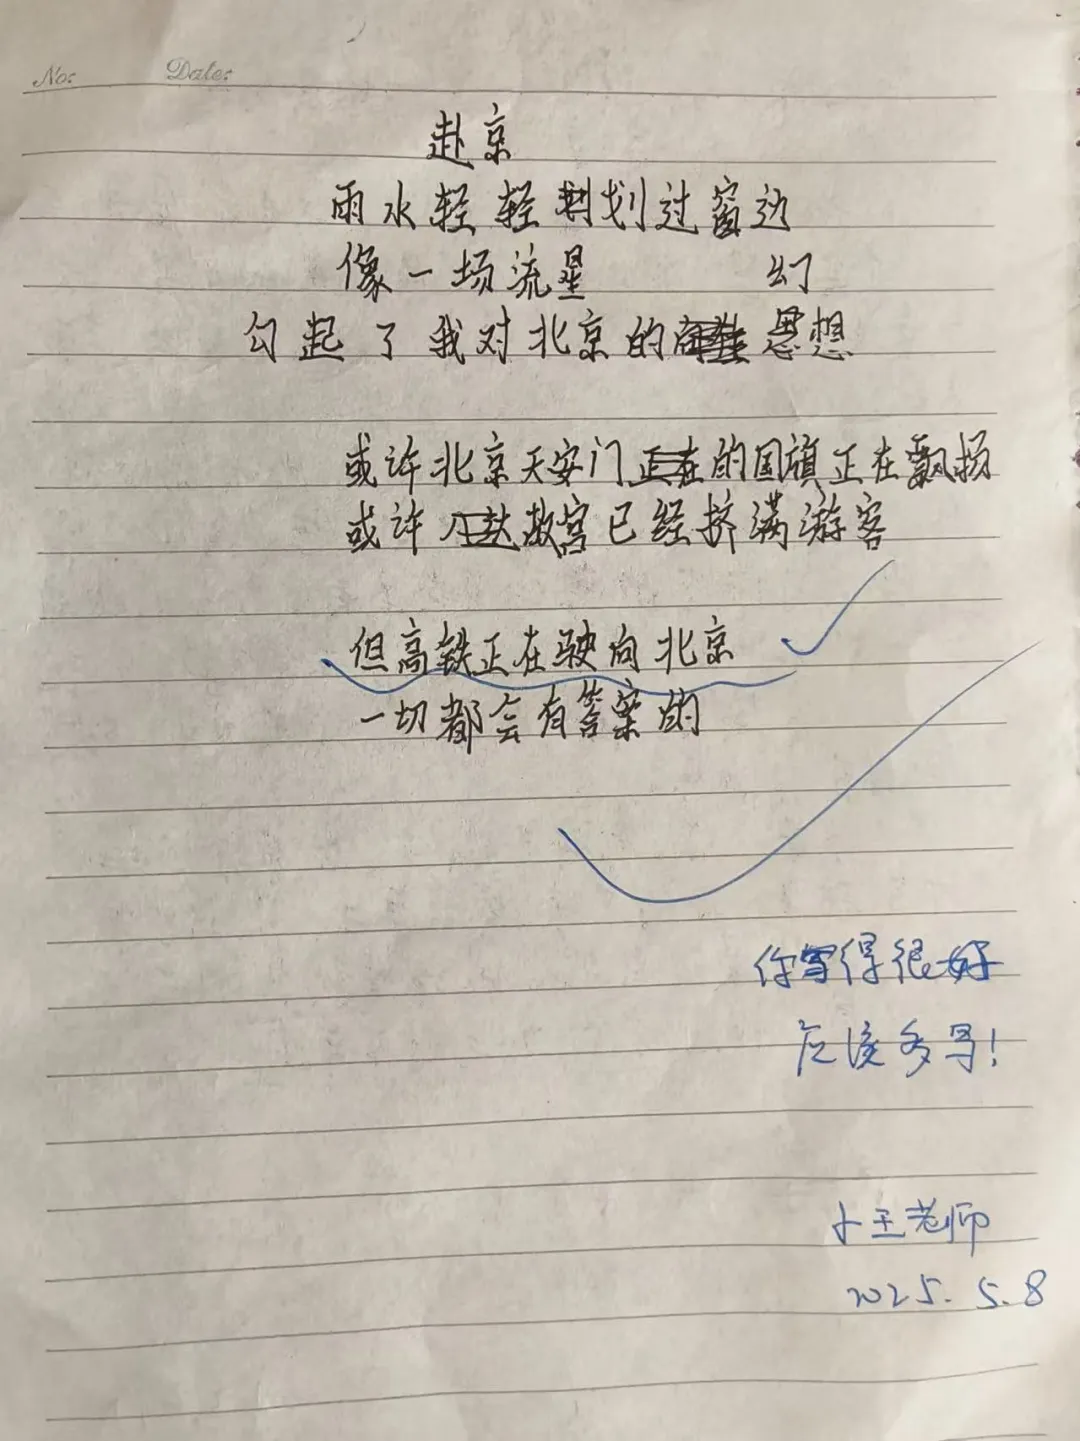 No:
Date:
赴京
雨水轻轻划过窗边
像一场流星
幻
勾起了我对北京的思想
或许北京天安门的国旗正在飘扬
或许故宫已经挤满游客
但高铁正在驶向北京
一切都会有答案的
你写得很好
应该多写!
小王老师
2025.5.8